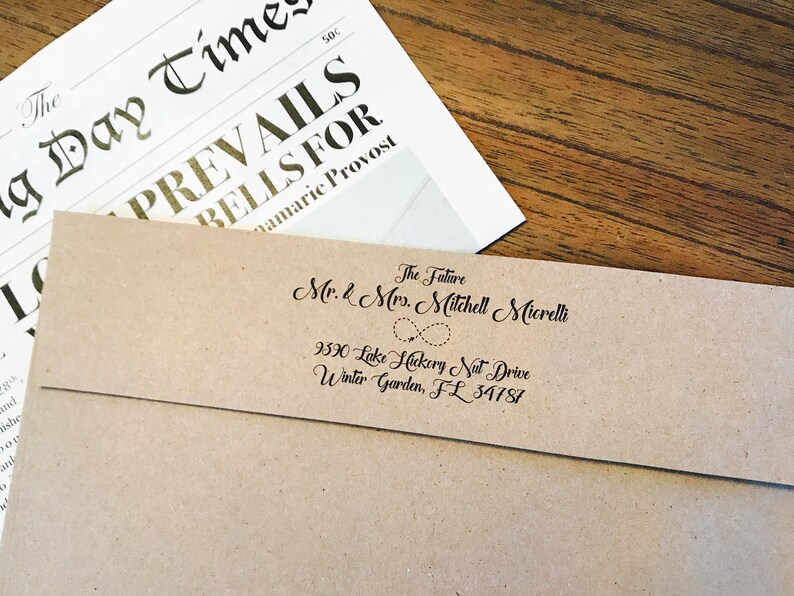 The
ng Day Times
50¢
PREVAILS
BELLS FOR
namarie Provost
LO
The Future
Mr. & Mrs. Mitchell Miorelli
9390 Lake Hickory Nut Drive
Winter Garden, FL 34787
and